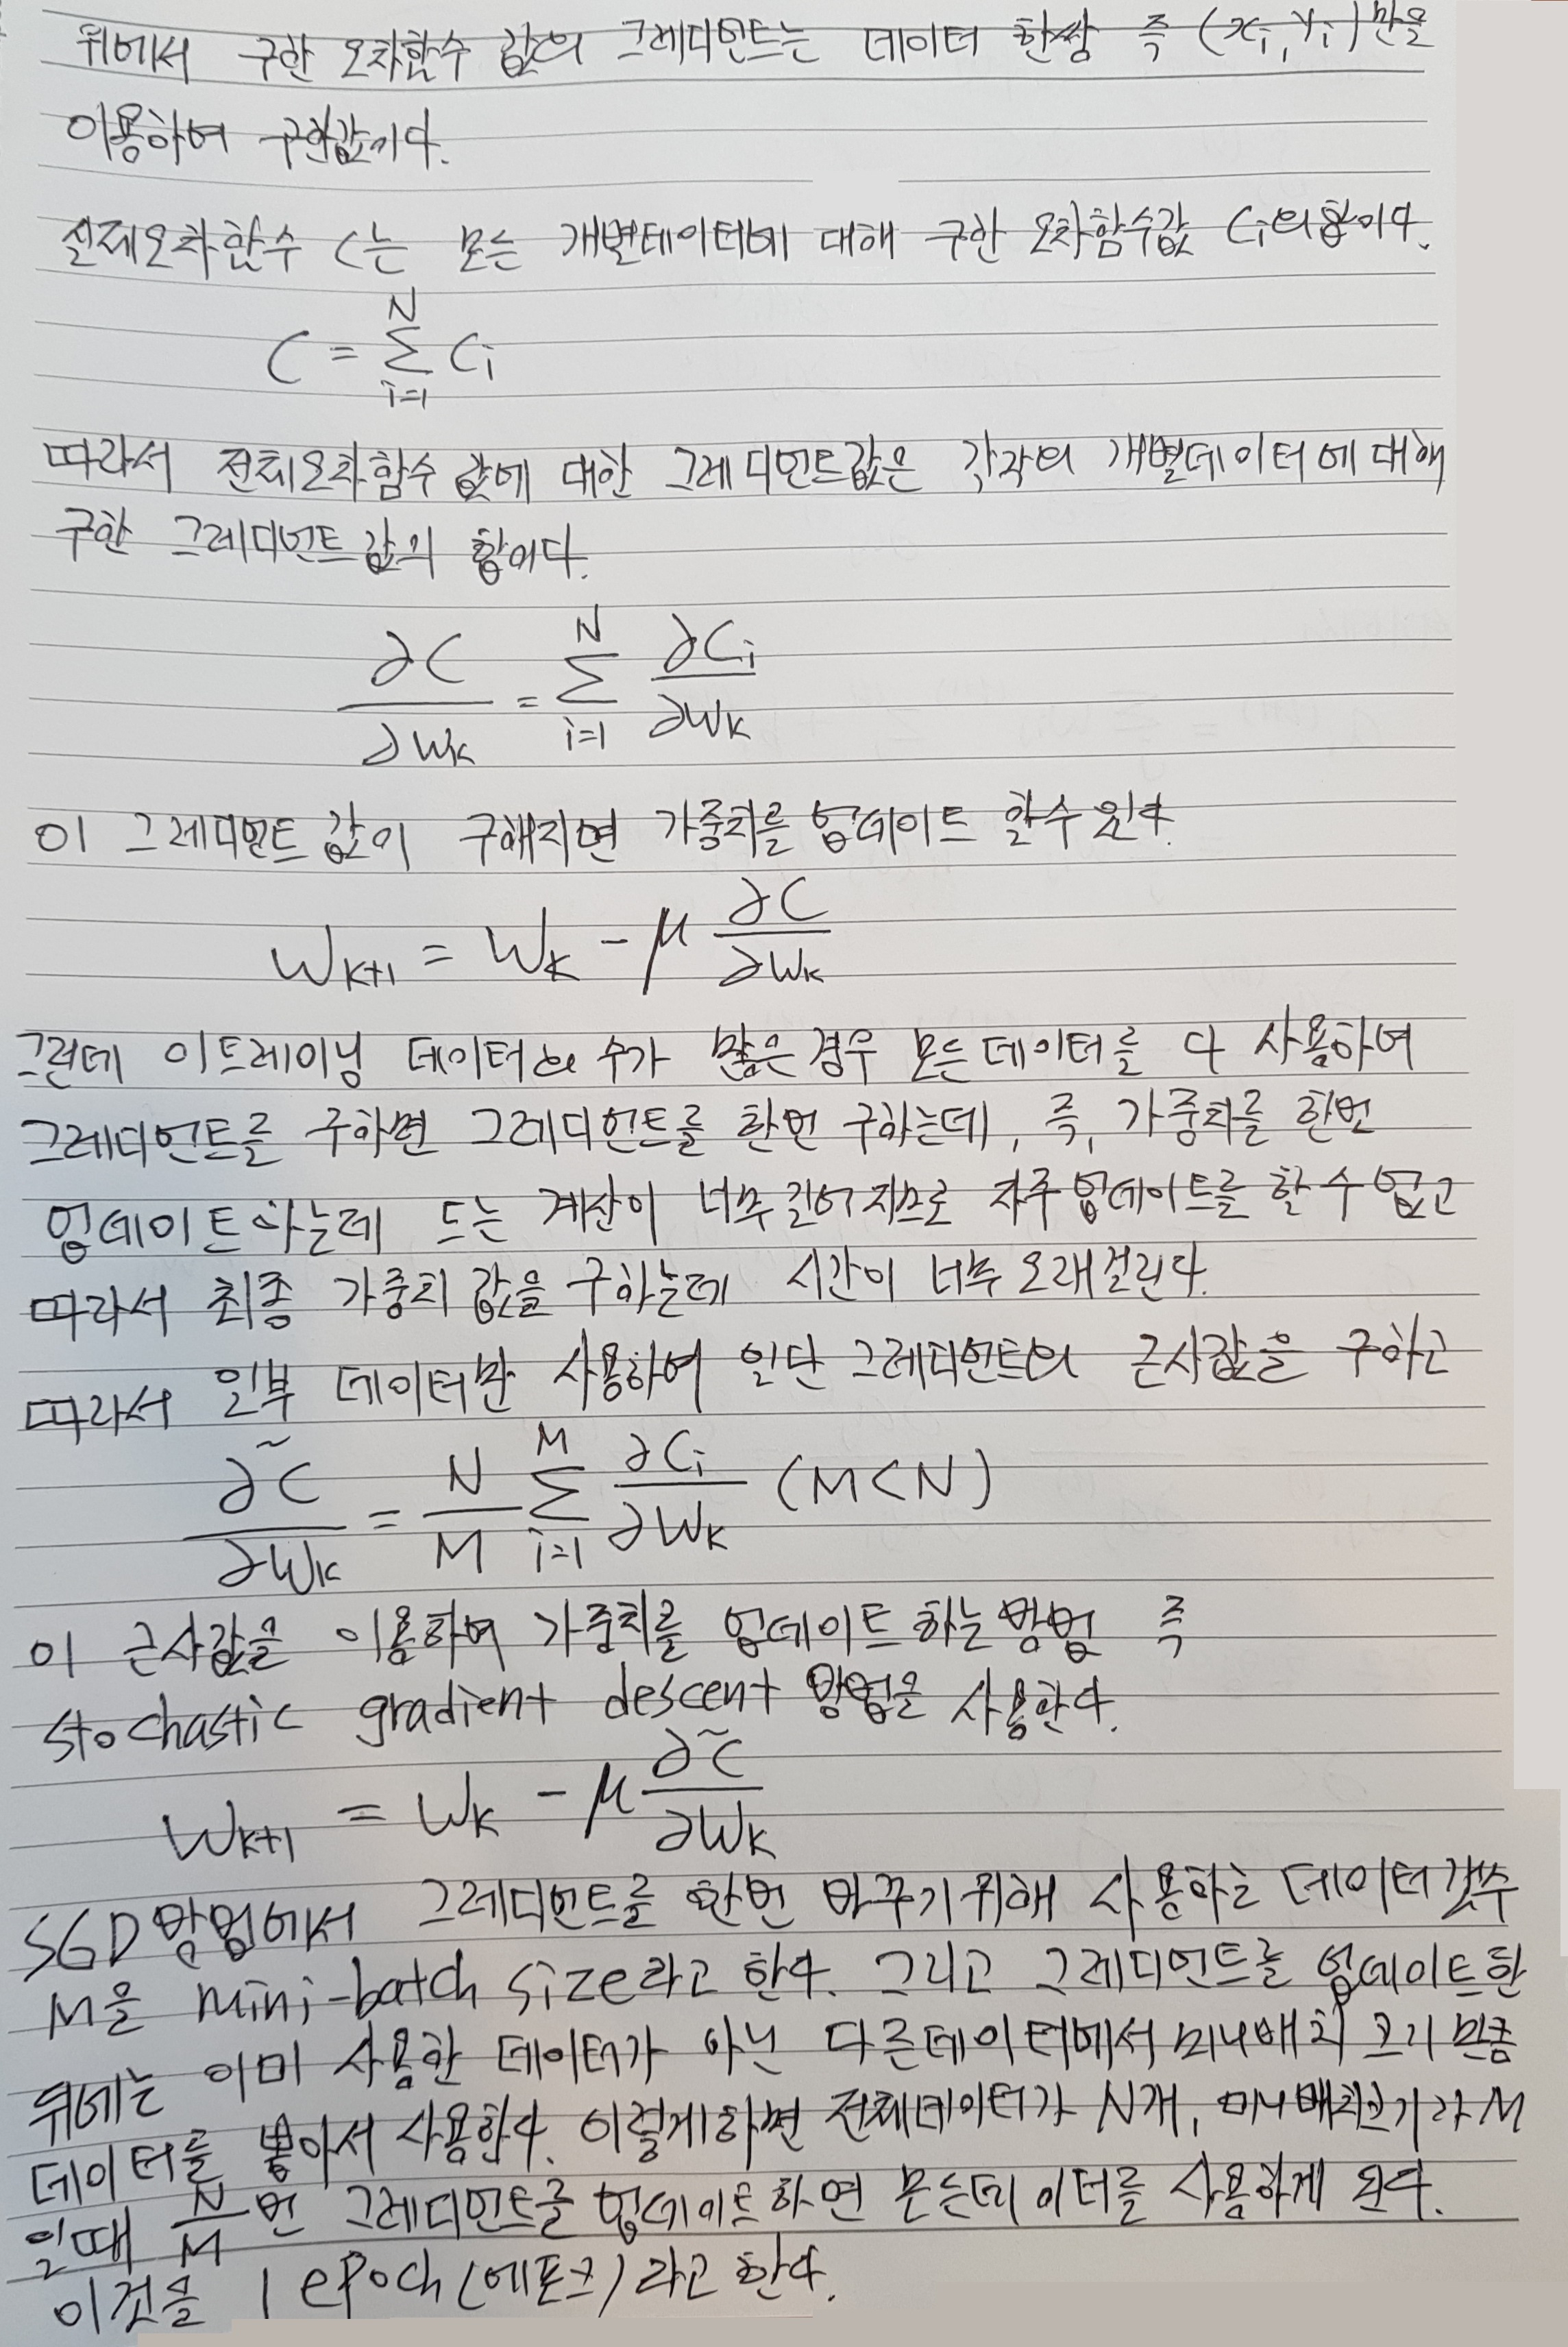 위에서 구한 오차함수 값의 그레디언트는 데이터 한쌍 즉 (xi, yi)만을
이용하여 구한값이다.
전체오차함수 C는 모든 개별데이터에 대해 구한 오차함수값 Ci의 합이다.
C = Σ_{i=1}^{N} Ci
따라서 전체오차함수 값에 대한 그레디언트값은 각각의 개별데이터에 대해
구한 그레디언트 값의 합이다.
∂C/∂Wk = Σ_{i=1}^{N} ∂Ci/∂Wk
이 그레디언트 값이 구해지면 가중치를 업데이트 할수 있다.
Wk+1 = Wk - μ ∂C/∂Wk
그런데 이트레이닝 데이터의 수가 많은경우 모든데이터를 다 사용하여
그레디언트를 구하면 그레디언트를 한번 구하는데, 즉, 가중치를 한번
업데이트하는데 드는 계산이 너무 길어지므로 자주 업데이트를 할 수 없고
따라서 최종 가중치 값을 구하는데 시간이 너무 오래걸린다.
따라서 일부 데이터만 사용하여 일단 그레디언트의 근사값을 구하고
∂C̃/∂Wk = N/M Σ_{i=1}^{M} ∂Ci/∂Wk (M<N)
이 근사값을 이용하여 가중치를 업데이트 하는방법 즉
stochastic gradient descent 방법을 사용한다.
Wk+1 = Wk - μ ∂C̃/∂Wk
SGD방법에서 그레디언트를 한번 바꾸기위해 사용하는 데이터갯수
M을 mini-batch size라고 한다. 그리고 그레디언트를 업데이트한
뒤에는 이미 사용한 데이터가 아닌 다른데이터에서 미니배치 크기 만큼
데이터를 뽑아서 사용한다. 이렇게하면 전체데이터가 N개, 미니배치크기가 M
일때 N/M 번 그레디언트를 업데이트하면 모든데이터를 사용하게 된다.
이것을 1 epoch(에포크)라고 한다.